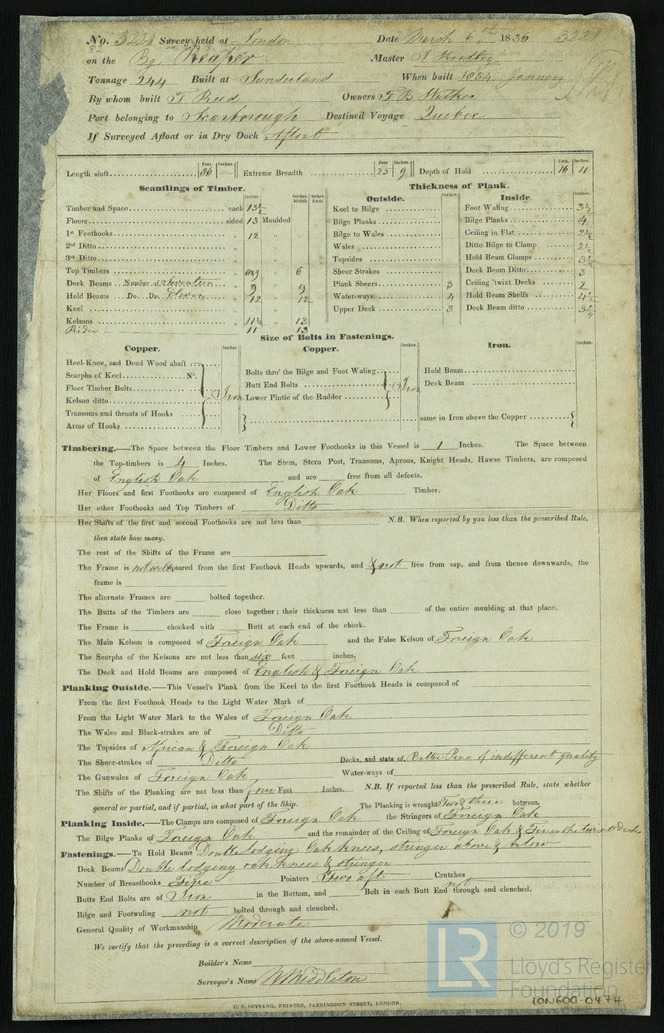 No. 3268 Survey held at London Date March 6th 1836 3328
on the Bg. Reaper Master
Tonnage 244 Built at Sunderland When built 1834 January
By whom built T Reed Owners T B Walker
Port belonging to Scarborough Destined Voyage Quebec
If Surveyed Afloat or in Dry Dock Afloat
Feet. Inches. Feet Inches. Feet Inches.
Length aloft 86 Extreme Breadth 25 9 Depth of Hold 16 11
Scantlings of Timber. Thickness of Plank.
Inches Inches Middle Inches Ends Outside. Inches Inside Inches
Timber and Space each 13½ Keel to Bilge Foot Waling 3½
Floors sided 13 Moulded Bilge Planks Bilge Planks 4
1st Foothooks " 12 Bilge to Wales Ceiling in Flat 2½
2nd Ditto " Wales Ditto Bilge to Clamp 2½
3rd Ditto " Topsides Hold Beam Clamps 3½
Top Timbers " 6 Sheer Strakes Deck Beam Ditto 3
Deck Beams Number of Seventeen " 9 9 Plank Sheers 3 Ceiling 'twixt Decks 2
Hold Beams Do. Do. Eleven " 12 12 Water-ways 4 Hold Beam Shelfs 4½
Keel " Upper Deck 3 Deck Beam ditto
Kelsons " 11½ 13
Rider 11 13
Size of Bolts in Fastenings.
Copper. Inches Copper. Inches Iron. Inches
Heel-Knee, and Dead Wood abaft
Scarphs of Keel No. Bolts thro' the Bilge and Foot Waling Hold Beam
Floor Timber Bolts Iron Butt End Bolts Iron Deck Beam
Kelson ditto Lower Pintle of the Rudder
Transoms and throats of Hooks same in Iron above the Copper
Arms of Hooks
Timbering.—The Space between the Floor Timbers and Lower Foothooks in this Vessel is 1 Inches. The Space between
the Top-timbers is 4 Inches. The Stem, Stern Post, Transoms, Aprons, Knight Heads, Hawse Timbers, are composed
of English Oak and are free from all defects.
Her Floors and first Foothooks are composed of English Oak Timber.
Her other Foothooks and Top Timbers of Ditto
Her Shifts of the first and second Foothooks are not less than N.B. When reported by you less than the prescribed Rule,
then state how many.
The rest of the Shifts of the Frame are
The Frame is not well squared from the first Foothook Heads upwards, and & not free from sap, and from thence downwards, the
frame is
The alternate Frames are bolted together.
The Butts of the Timbers are close together; their thickness not less than of the entire moulding at that place.
The Frame is chocked with Butt at each end of the chock.
The Main Kelson is composed of Foreign Oak and the False Kelson of Foreign Oak
The Scarphs of the Kelsons are not less than six feet inches.
The Deck and Hold Beams are composed of English & Foreign Oak
Planking Outside.—This Vessel's Plank from the Keel to the first Foothook Heads is composed of
From the first Foothook Heads to the Light Water Mark of
From the Light Water Mark to the Wales of Foreign Oak
The Wales and Black-strakes are of Ditto
The Topsides of African & Foreign Oak
The Sheer-strakes of Ditto Decks, and state of, Baltic Pine of indifferent quality
The Gunwales of Foreign Oak Water-ways of
The Shifts of the Planking are not less than four Feet Inches. N.B. If reported less than the prescribed Rule, state whether
general or partial, and if partial, in what part of the Ship. The Planking is wrought Two & three between.
Planking Inside.—The Clamps are composed of Foreign Oak the Stringers of Foreign Oak
The Bilge Planks of Foreign Oak and the remainder of the Ceiling of Foreign Oak &
Fastenings.—To Hold Beams Double lodging Oak knees, stringer above & below
Deck Beams Double lodging oak knees & stringer
Number of Breasthooks Five Pointers Two aft Crutches
Butts End Bolts are of Iron in the Bottom, and not Bolt in each Butt End through and clenched.
Bilge and Footwaling not bolted through and clenched.
General Quality of Workmanship Moderate
We certify that the preceding is a correct description of the above-named Vessel.
Builder's Name
Surveyor's Name W Middleton
C. F. SEYFANG, PRINTER, FARRINGDON STREET, LONDON.
LR
© 2019
Lloyd's Register
Foundation
LON600-0474